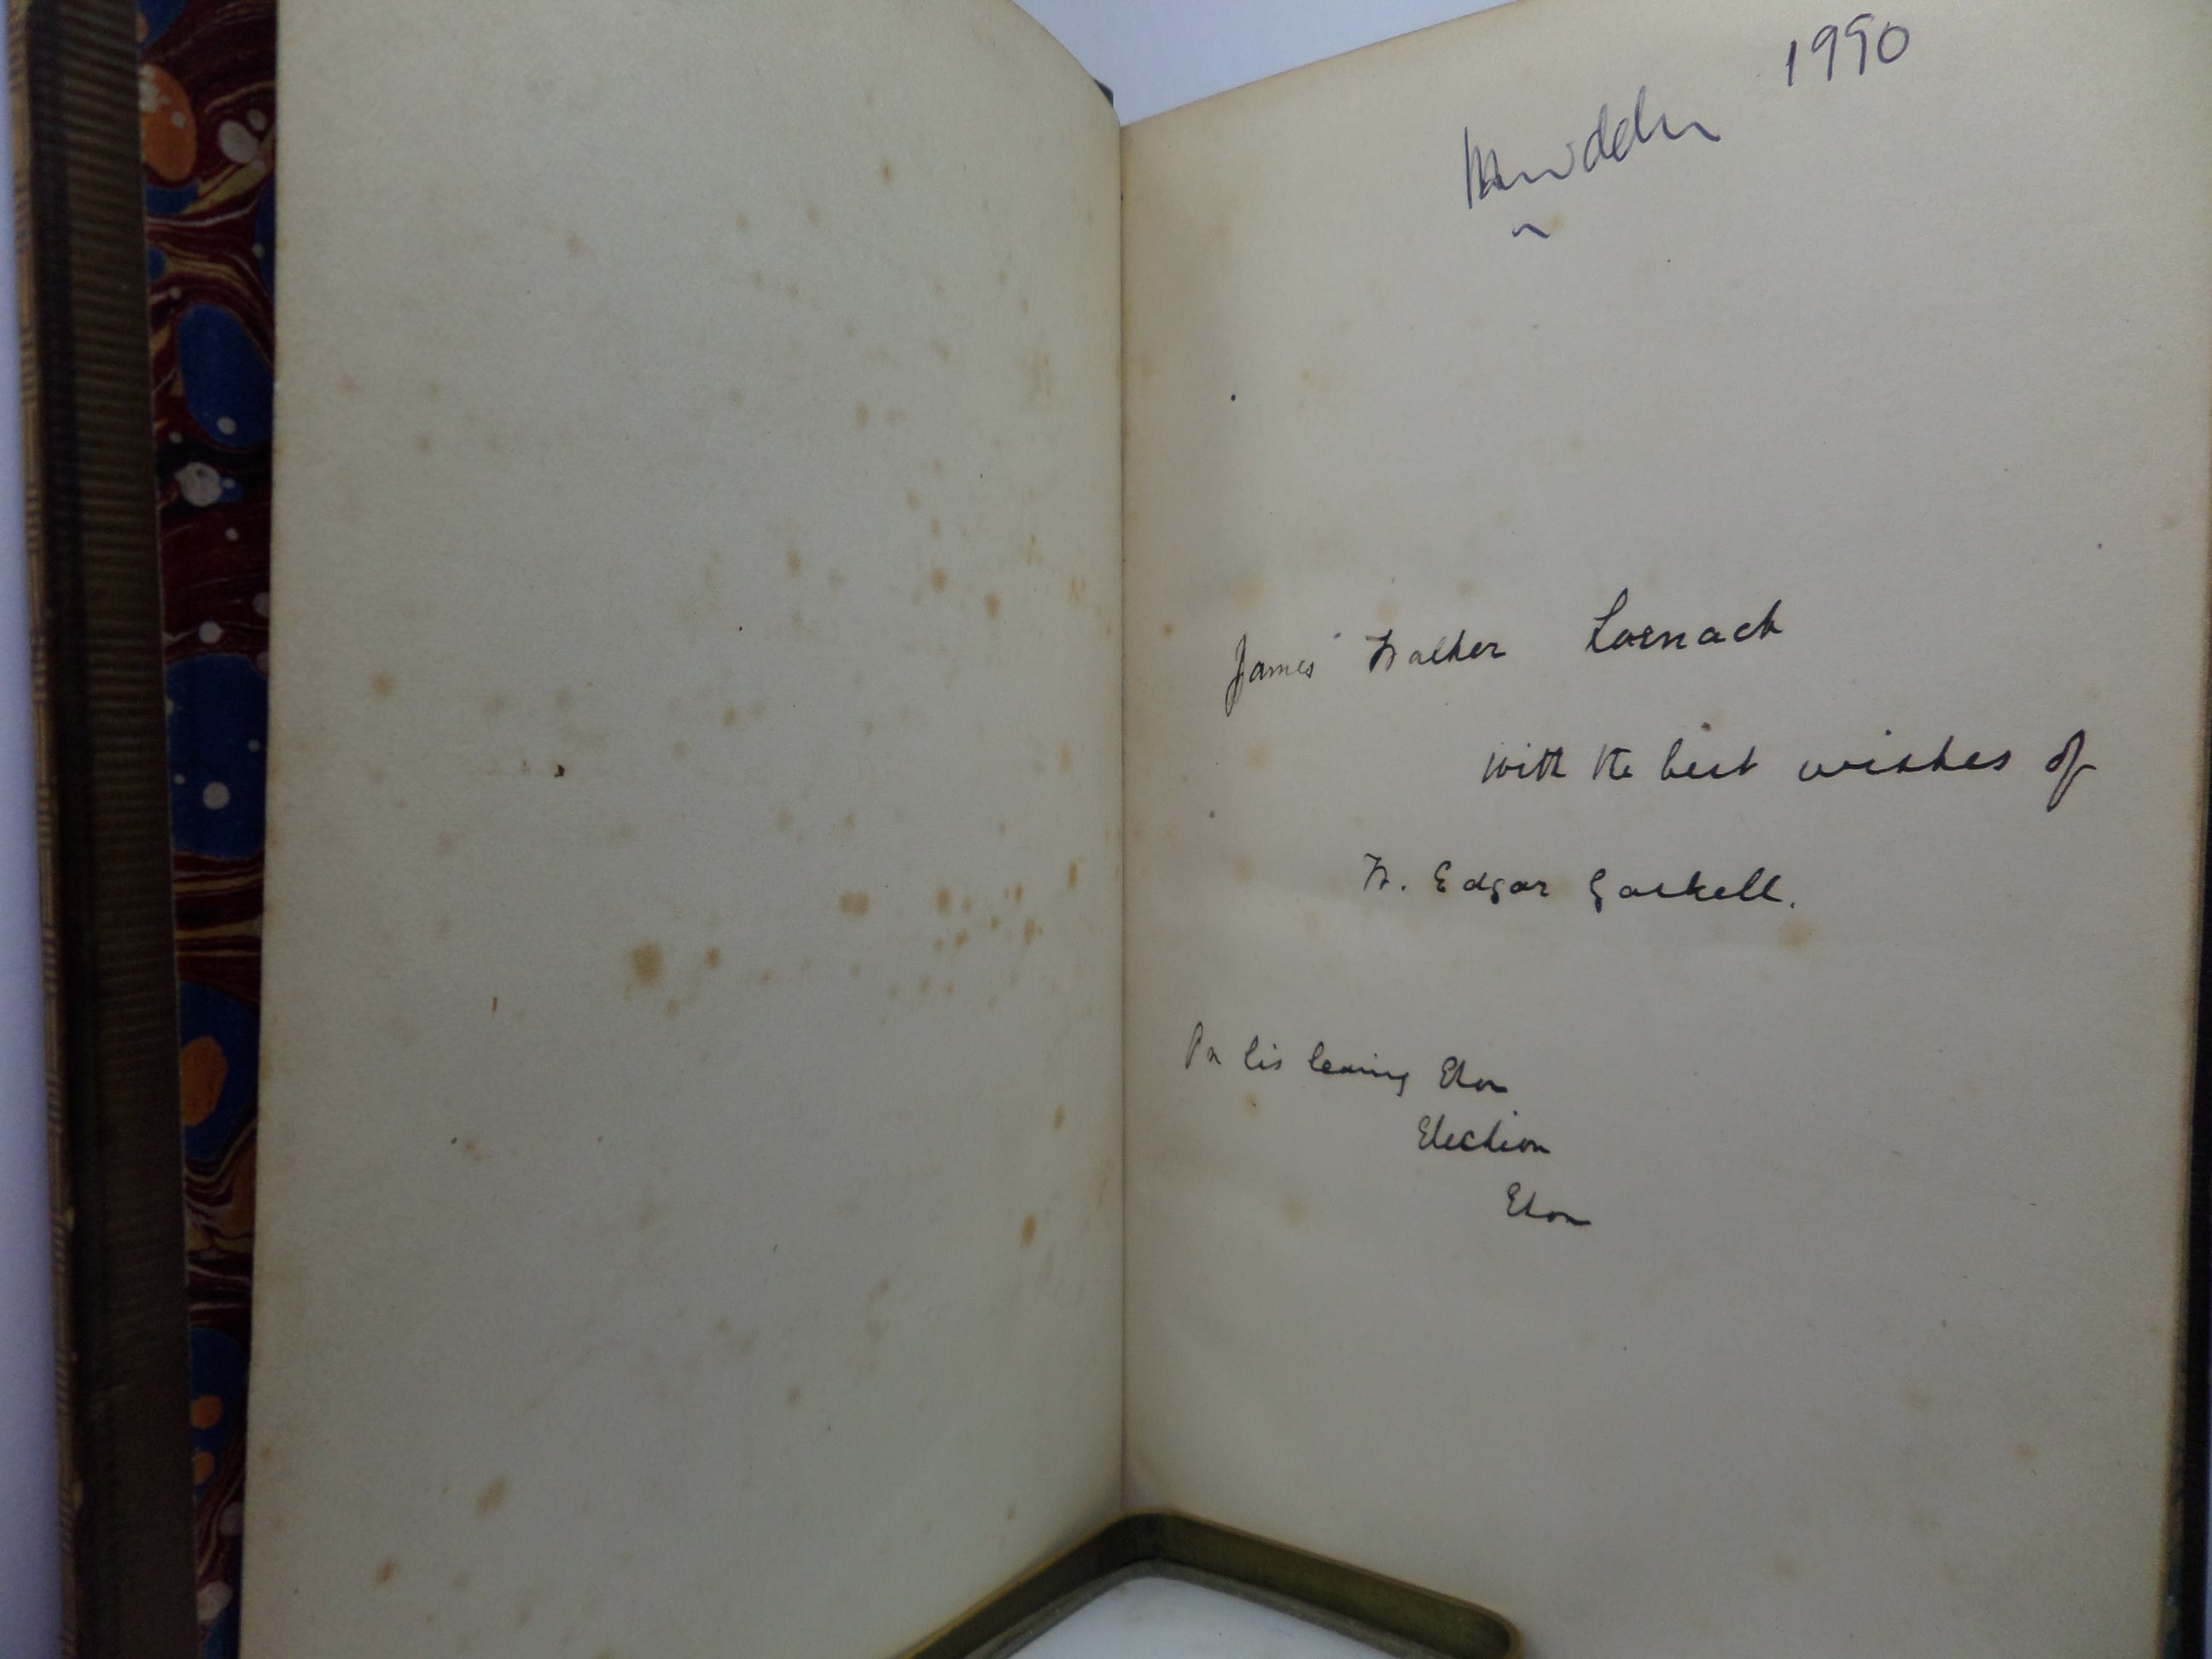 1990
James Walker Larnach
with the best wishes of
W. Edgar Gaskell.
On his leaving Eton
Election
Eton